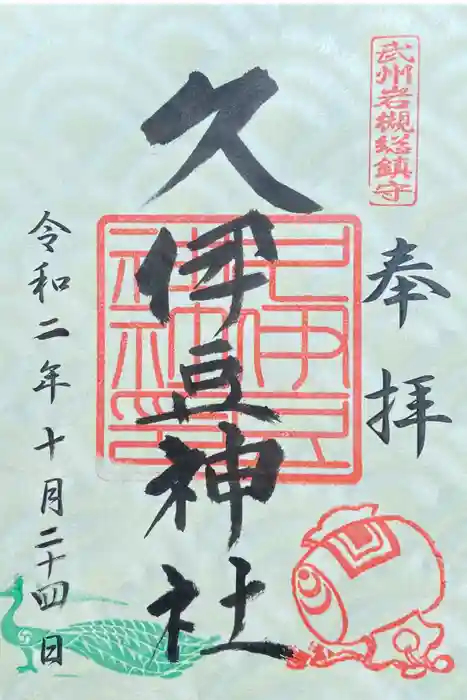 武州岩槻総鎮守
奉拝
久伊豆神社
令和二年十月二十四日